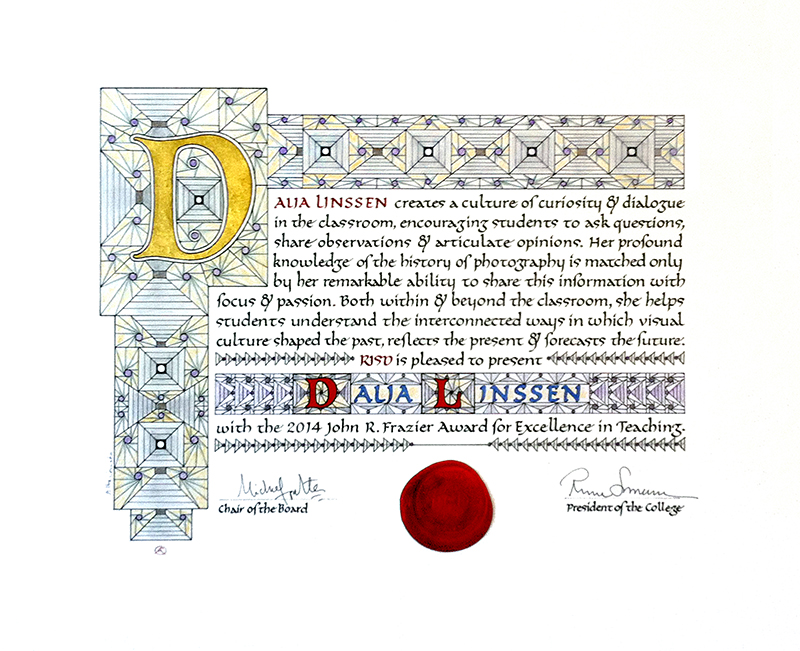 DALIA LINSSEN creates a culture of curiosity & dialogue
in the classroom, encouraging students to ask questions,
share observations & articulate opinions. Her profound
knowledge of the history of photography is matched only
by her remarkable ability to share this information with
focus & passion. Both within & beyond the classroom, she helps
students understand the interconnected ways in which visual
culture shaped the past, reflects the present & forecasts the future.
RISD is pleased to present
DALIA LINSSEN
with the 2014 John R. Frazier Award for Excellence in Teaching.
Chair of the Board
President of the College